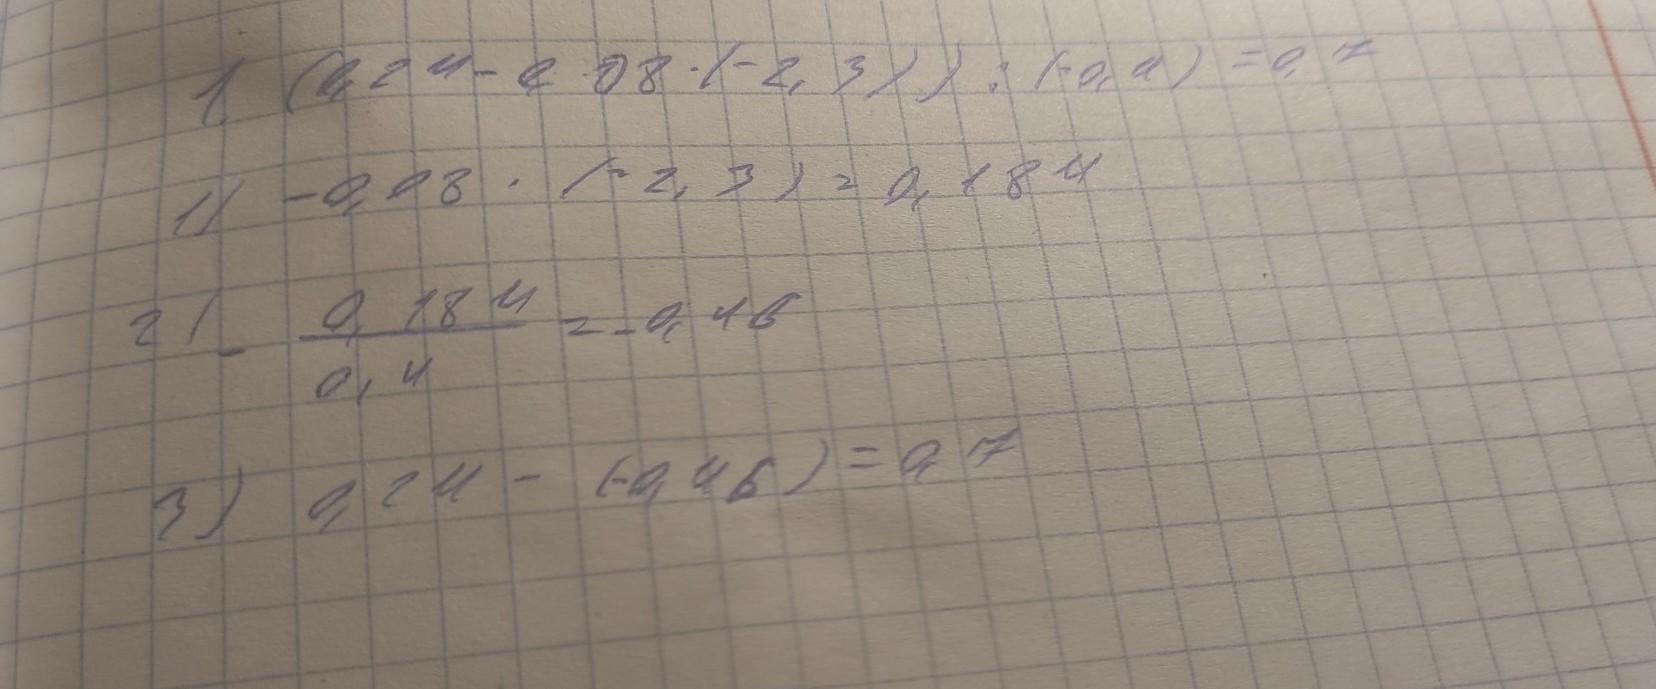 1 (0,24-0,08·(-2,3)):(-0,4)=0,7
1) -0,08 · (-2,3)=0,184
2) - 0,184/0,4 = -0,46
3) 0,24 - (-0,46)=0,7